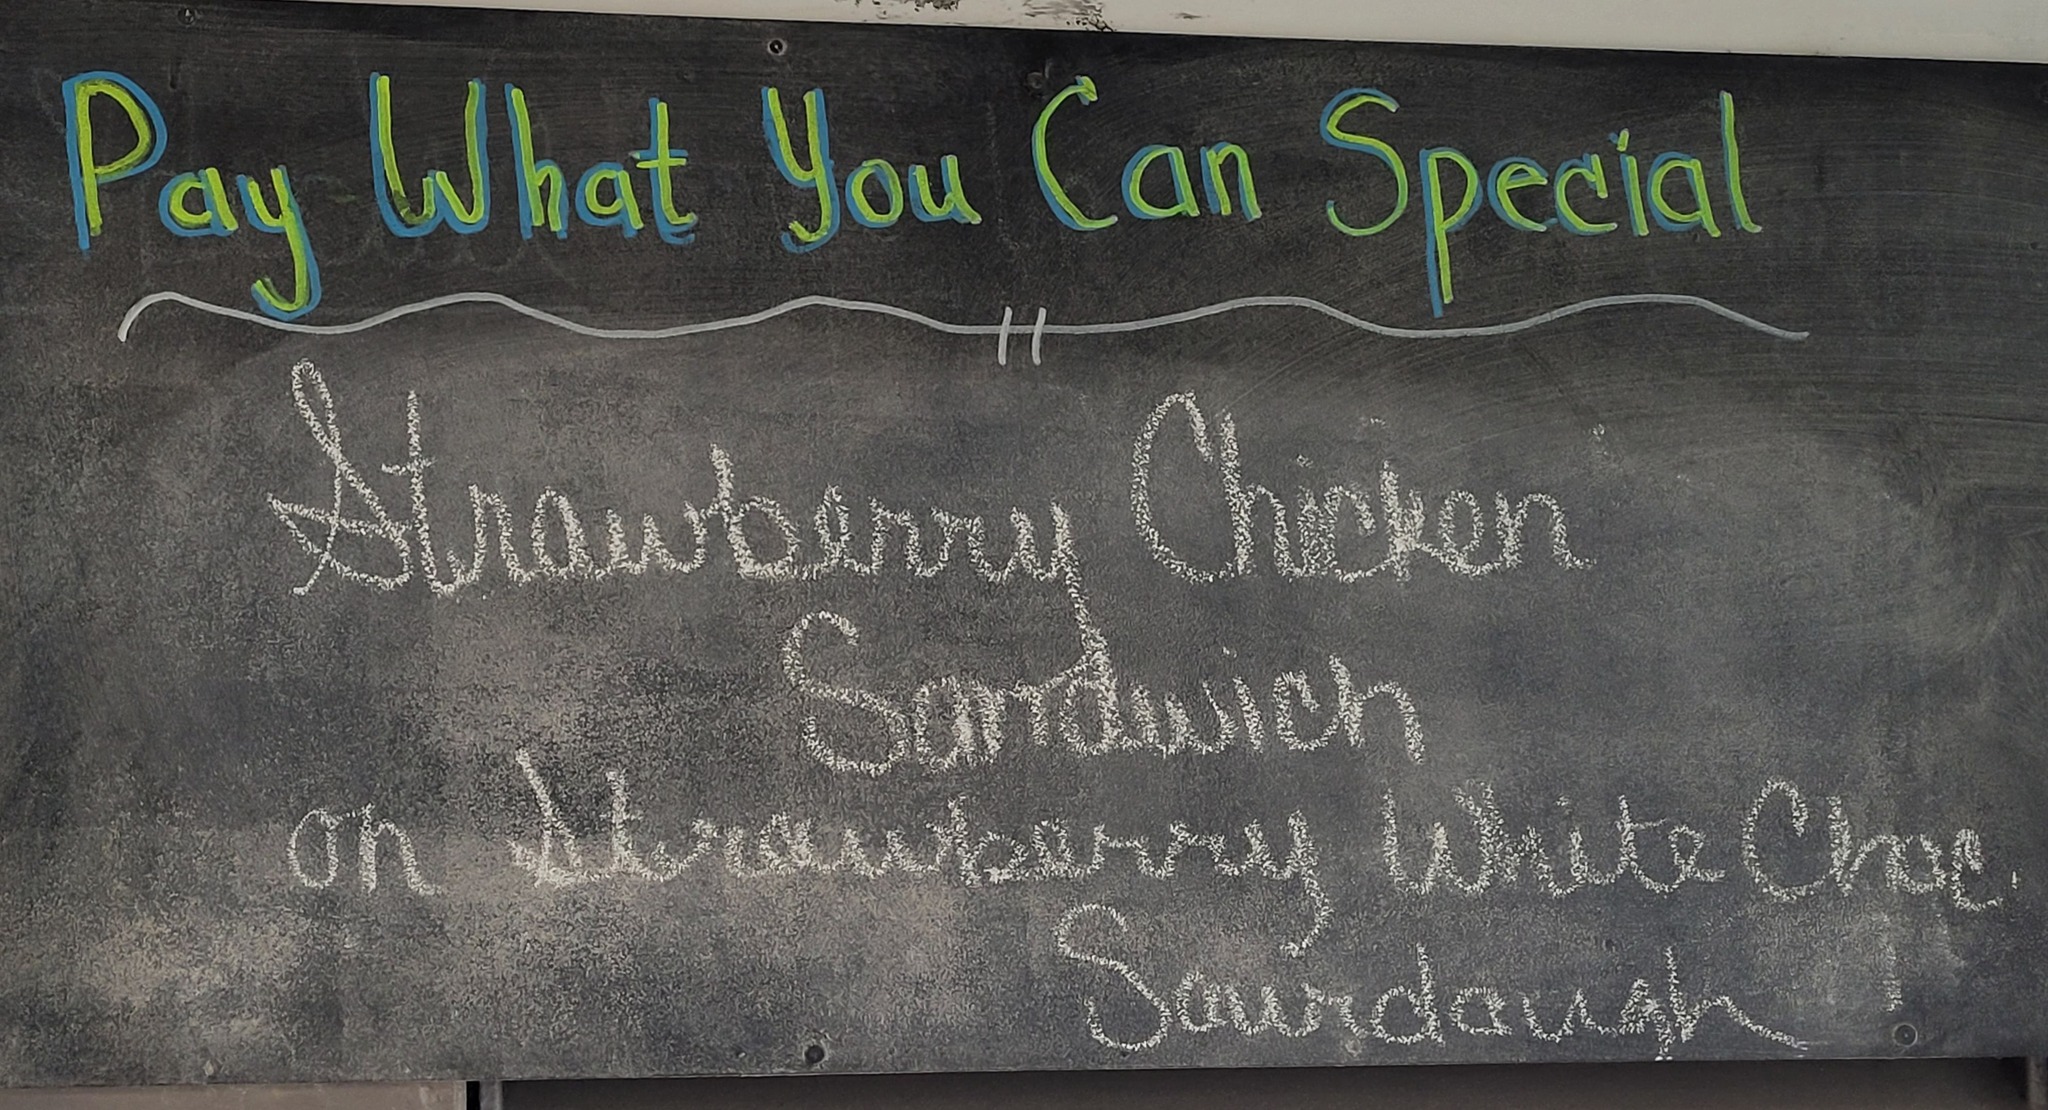 Pay What You Can Special
Strawberry Chicken
Sandwich
on Strawberry White Choc.
Sourdough